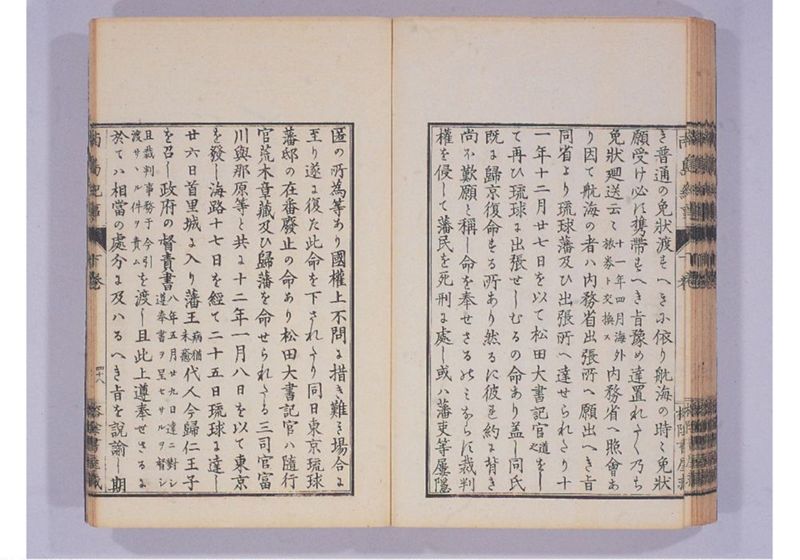 き普通の免狀渡すへきに依り航海の時々免狀
願受け必す携帶すへき旨豫め達置れたく乃ち
免狀廻送云々十一年四月海外旅券ト交換ス內務省へ照會あ
り因て航海の者ハ內務省出張所へ願出へき旨
同省より琉球藩及ひ出張所へ達せられたり十
一年十二月廿七日を以て松田大書記官道之をし
て再ひ琉球に出張せしむるの命あり蓋し同氏
既に歸京復命する所あり然るに彼を約に背き
尚ホ歎願と稱し命を奉せさるのみならす裁判
權を侵して藩民を死刑に處し或ハ藩吏等屢隱
匿の所為等あり國權上不問に措き難き場合に
至り遂に復た此命を下されたり同日東京琉球
藩邸の在番廢止の命あり松田大書記官ハ隨行
官荒木章藏及ひ歸藩を命せられたる三司官富
川與那原等と共に十二年一月八日を以て東京
を發し海路十七日を經て二十五日琉球に達し
廿六日首里城に入り藩王病猶未癒代人今歸仁王子
を召し政府の督責書八年五月廿九日達ニ對シ遵奉書ヲ呈セサルヲ督シ
且裁判事務于今引渡サヽル件ヲ責ムを渡し且此上遵奉せさるに
於てハ相當の處分に及ハるへき旨を説諭し期
下卷
四十八